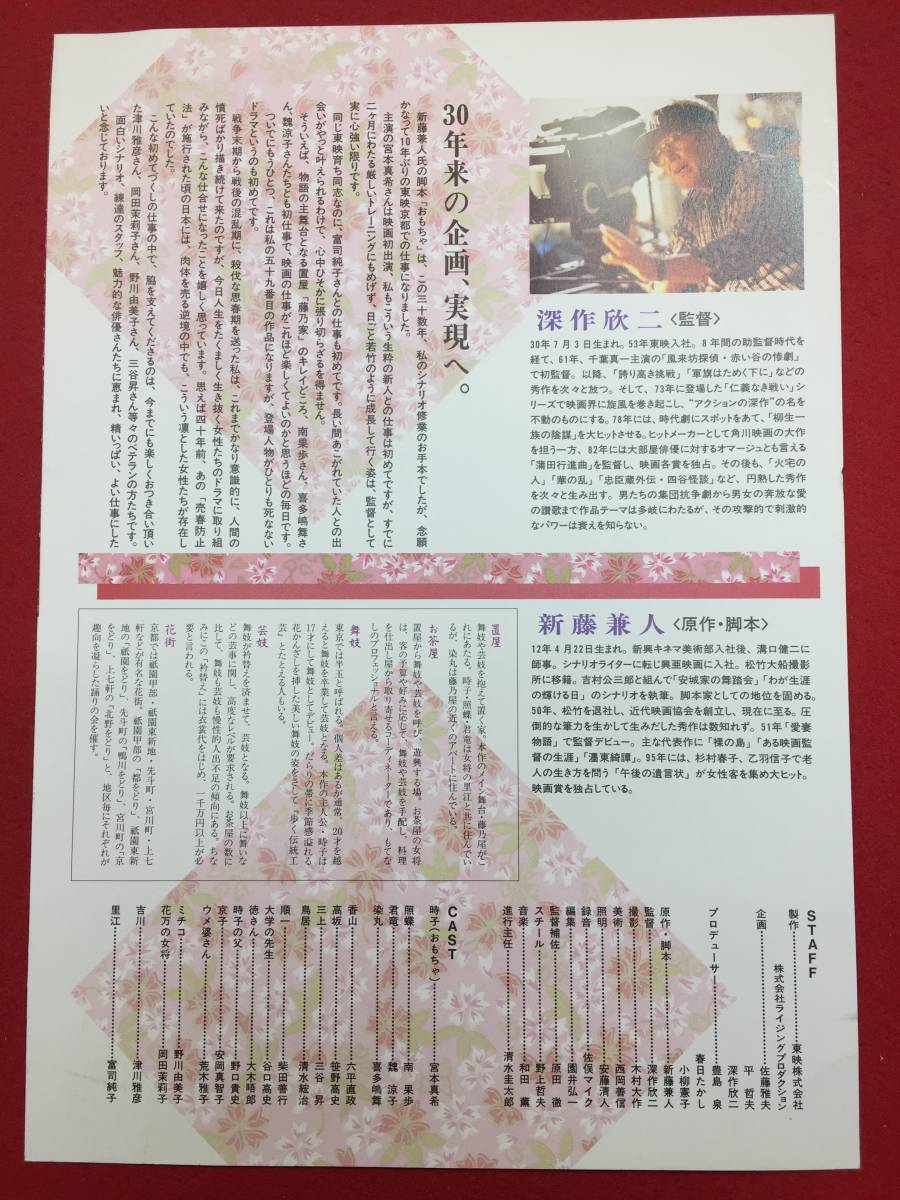 30年来の企画、実現へ。
新藤兼人氏の脚本「おもちゃ」は、この三十数年、私のシナリオ修業のお手本でしたが、念願
かなって10年ぶりの東映京都での仕事になりました。
主演の宮本真希さんは映画初出演、私もこういう生粋の新人との仕事は初めてですが、すでに
二ヶ月にわたる厳しいトレーニングにもめげず、日ごと若竹のように成長して行く姿は、監督として
実に心強い限りです。
同じ東映育ち同志なのに、富司純子さんとの仕事も初めてです。長い間あこがれていた人との出
会いがやっと叶えられるわけで、心中ひそかに張り切らざるを得ません。
そういえば、物語の主舞台となる置屋「藤乃家」のキレイどころ、南果歩さん、喜多嶋舞さ
ん、魏涼子さんたちとも初仕事で、映画の仕事がこれほど楽しくてよいのかと思うほどの毎日です。
ついでにもうひとつ、これは私の五十九番目の作品になりますが、登場人物がひとりも死なない
ドラマというのも初めてです。
戦争末期から戦後の混乱期に、殺伐な思春期を送った私は、これまでかなり意識的に、人間の
憤死ばかり描き続けて来たのですが、今日人生をたくましく生き抜く女性たちのドラマに取り組
みながら、こんな仕合せになったことを嬉しく思っています。思えば四十年前、あの「売春防止
法」が施行された頃の日本には、肉体を売る逆境の中でも、こういう凛とした女性たちが存在し
ていたのでした。
こんな初めてづくしの仕事の中で、脇を支えてくださるのは、今までにも楽しくおつき合い頂い
た津川雅彦さん、岡田茉莉子さん、野川由美子さん、三谷昇さん等々のベテランの方たちです。
面白いシナリオ、練達のスタッフ、魅力的な俳優さんたちに恵まれ、精いっぱい、よい仕事にした
いと念じております。
深作欣二〈監督〉
30年7月3日生まれ。53年東映入社。8年間の助監督時代を
経て、61年、千葉真一主演の「風来坊探偵・赤い谷の惨劇」
で初監督。以降、「誇り高き挑戦」「軍旗はためく下に」などの
秀作を次々と放つ。そして、73年に登場した「仁義なき戦い」シ
リーズで映画界に旋風を巻き起こし、“アクションの深作”の名を
不動のものにする。78年には、時代劇にスポットをあて、「柳生一
族の陰謀」を大ヒットさせる。ヒットメーカーとして角川映画の大作
を担う一方、82年には大部屋俳優に対するオマージュとも言える
「蒲田行進曲」を監督し、映画各賞を独占。その後も、「火宅の
人」「華の乱」「忠臣蔵外伝・四谷怪談」など、円熟した秀作
を次々と生み出す。男たちの集団抗争劇から男女の奔放な愛
の讃歌まで作品テーマは多岐にわたるが、その攻撃的で刺激的
なパワーは衰えを知らない。
新藤兼人〈原作・脚本〉
12年4月22日生まれ。新興キネマ美術部入社後、溝口健二に
師事。シナリオライターに転じ興亜映画に入社。松竹大船撮影
所に移籍。吉村公三郎と組んで「安城家の舞踏会」「わが生涯
の輝ける日」のシナリオを執筆。脚本家としての地位を固める。
50年、松竹を退社し、近代映画協会を創立し、現在に至る。圧
倒的な筆力を生かして生みだした秀作は数知れず。51年「愛妻
物語」で監督デビュー。主な代表作に「裸の島」「ある映画監督
の生涯」「濹東綺譚」。95年には、杉村春子、乙羽信子で老
人の生き方を問う「午後の遺言状」が女性客を集め大ヒット。
映画賞を独占している。
置屋
舞妓や芸妓を抱えて置く家。本作のメイン舞台・藤乃屋がこ
れにあたる。時子・照蝶・君竜は女将の里江と共に住んでい
るが、染丸は藤乃屋の近くのアパートに住んでいる。
お茶屋
置屋から舞妓や芸妓を呼び、遊興する場。お茶屋の女将
は、客の予算や好みに応じて、舞妓や芸妓を手配し、料理
を仕出し屋から取り寄せるコーディネーターであり、もてな
しのプロフェッショナルと言える。
舞妓
東京では半玉と呼ばれる。個人差はあるが通常、20才を越
えると舞妓を卒業して芸妓となる。本作の主人公・時子は
17才にして舞妓としてデビュー。だらりの帯に季節感溢れる
花かんざしを挿した美しい舞妓の姿をさして『歩く伝統工
芸』とたとえる人もいる。
芸妓
舞妓が衿替えを済ませて、芸妓となる。舞妓以上に舞いな
どの芸事に関し、高度なレベルが要求される。お茶屋の数に
比して、舞妓も芸妓も慢性的人出不足の傾向にある。ちな
みにこの「衿替え」には衣裳代をはじめ、一千万円以上が必
要と言われる。
花街
京都では祇園甲部・祇園東新地・先斗町・宮川町・上七
軒などが有名な花街。祇園甲部の「都をどり」、祇園東新
地の「祇園をどり」、先斗町の「鴨川をどり」、宮川町の「京
をどり」、上七軒の「北野をどり」と、地区毎にそれぞれが
趣向を凝らした踊りの会を催す。
STAFF
製作……東映株式会社
株式会社ライジングプロダクション
企画……佐藤雅夫
平 哲夫
深作欣二
プロデューサー……豊島 泉
春日たかし
小柳憲子
原作・脚本……新藤兼人
監督……深作欣二
撮影……木村大作
美術……西岡善信
照明……安藤清人
録音……佐俣マイク
編集……園井弘一
監督補佐……原田 徹
スチール……野上哲夫
音楽……和田 薫
進行主任……清水圭太郎
CAST
時子(おもちゃ)……宮本真希
照蝶……南 果歩
君竜……魏 涼子
染丸……喜多嶋舞
香山……六平直政
高坂……笹野高史
三上……三谷 昇
鳥居……清水紘治
順一……柴田善行
大学の先生……谷口高史
徳さん……大木晤郎
時子の父……野口貴史
京子……安岡真智子
ウメ婆さん……荒木雅子
ミチコ……野川由美子
花万の女将……岡田茉莉子
吉川……津川雅彦
里江……富司純子